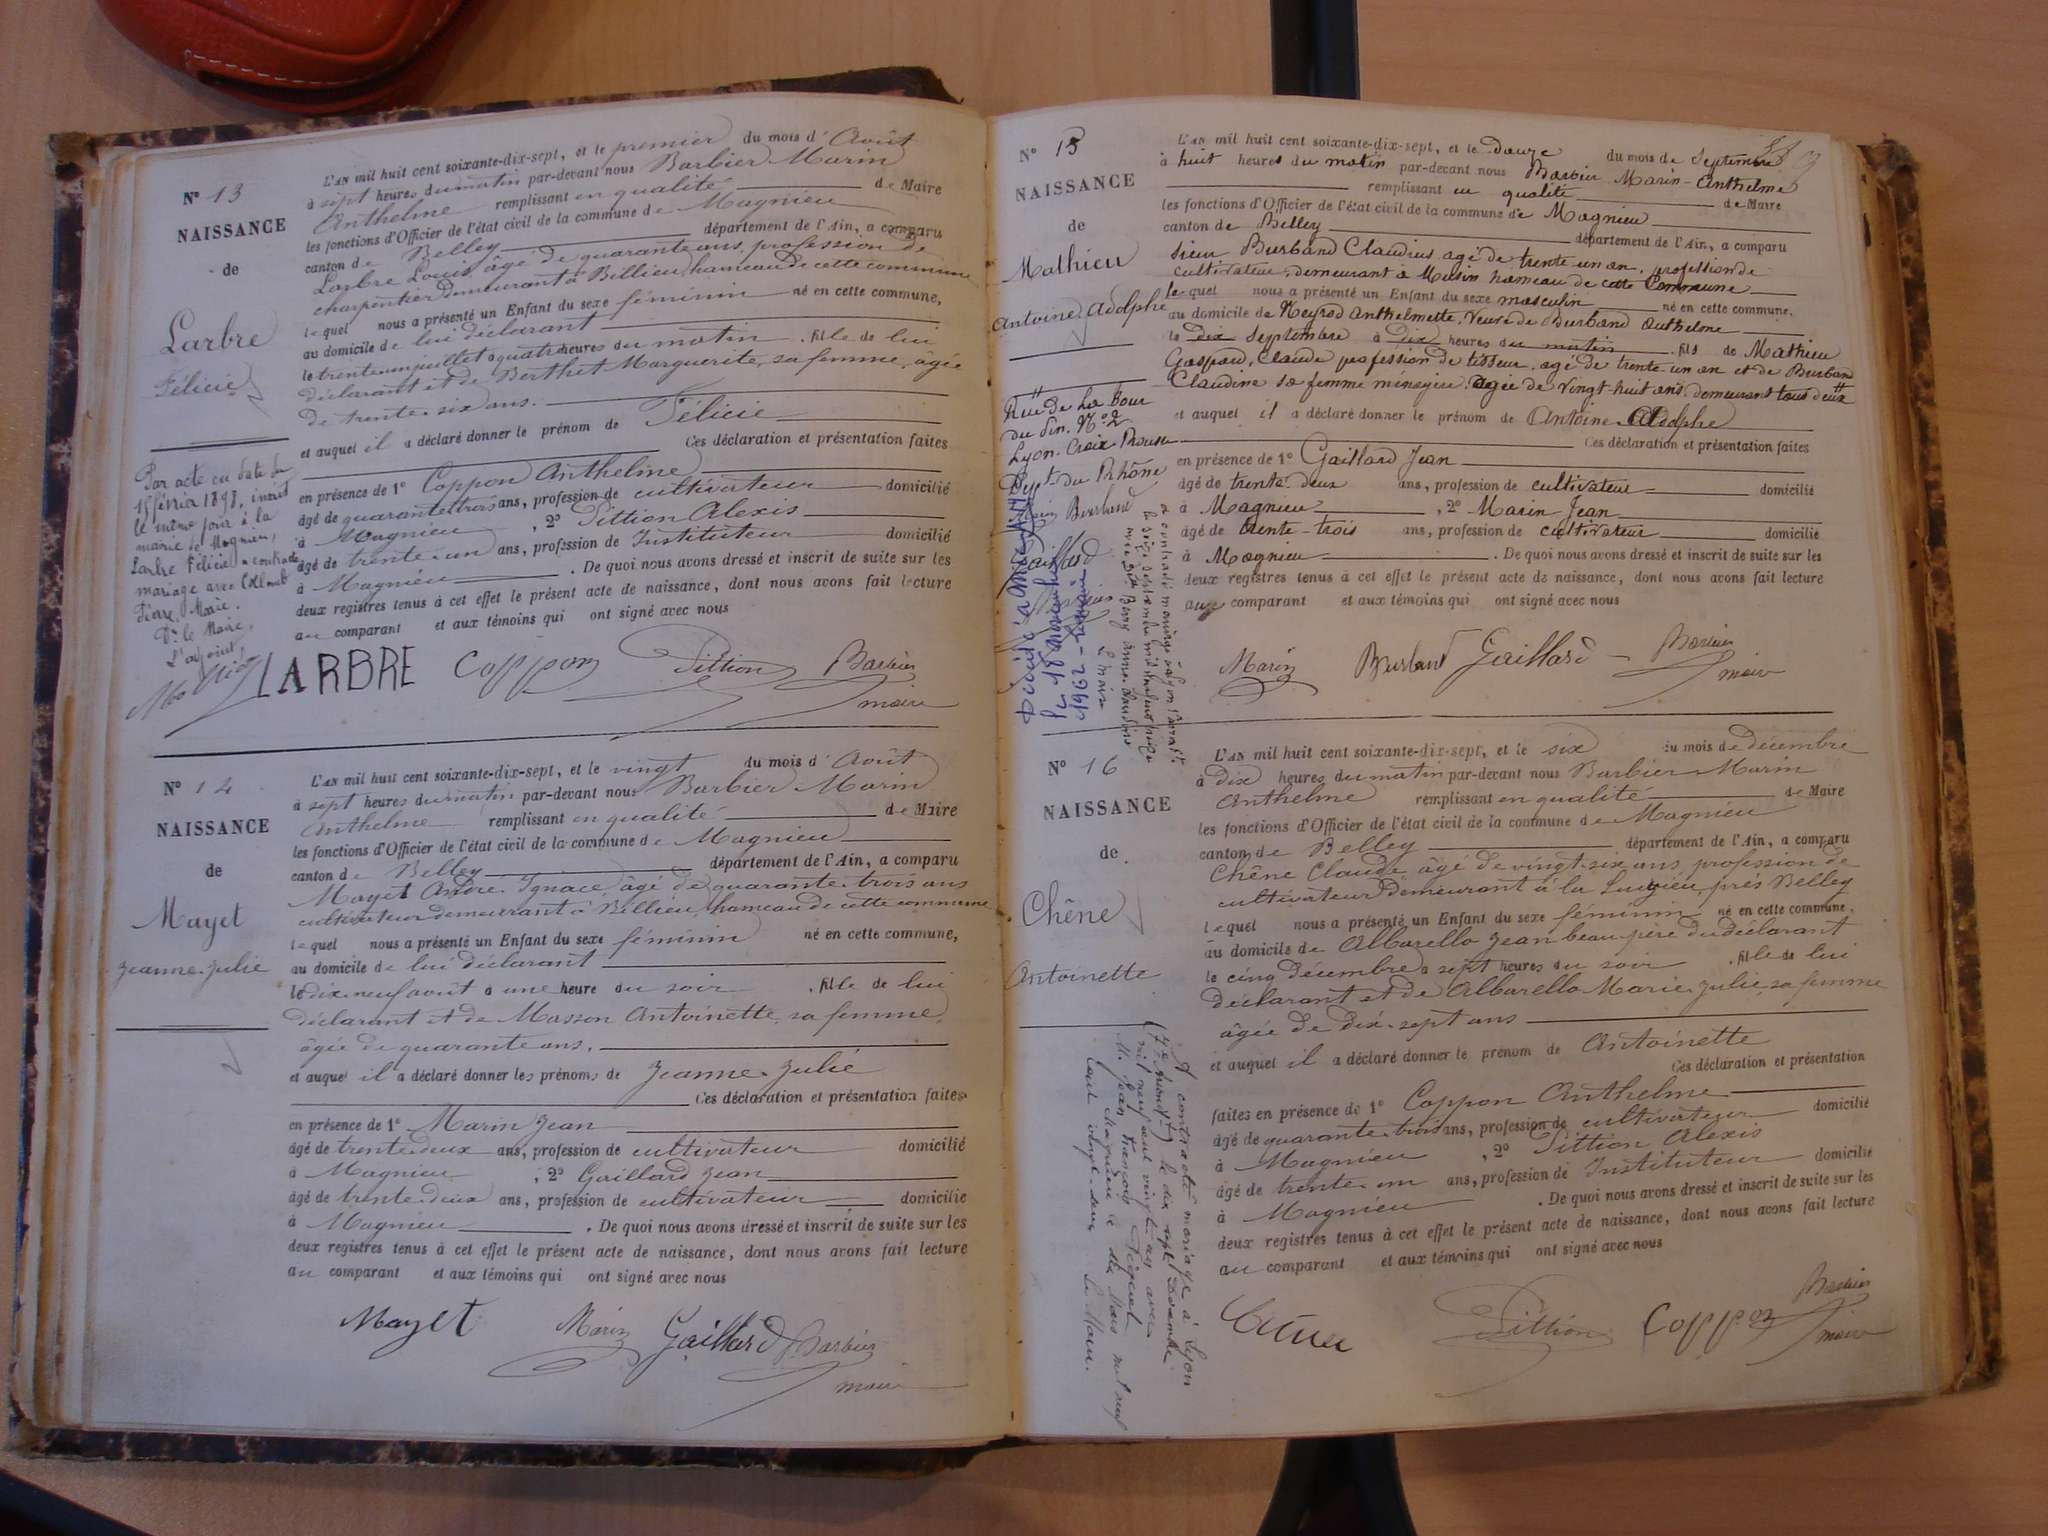 N° 13
NAISSANCE
de
Larbre
Félicie
Par acte en date du
15 février 1898, inscrit
le même jour à la
mairie de Magnieu,
Larbre Félicie a contracté
mariage avec
Pierre Marie.
Pr le Maire,
L'adjoint,
L'AN mil huit cent soixante-dix-sept, et le premier du mois d'Août
à sept heures du matin par-devant nous Barbier Marin
Anthelme remplissant en qualité de Maire
les fonctions d'Officier de l'état civil de la commune de Magnieu
canton de Belley département de l'Ain, a comparu
Larbre Louis, âgé de quarante ans, profession de
charpentier demeurant à Billieu, hameau de cette commune
lequel nous a présenté un Enfant du sexe féminin né en cette commune,
au domicile de lui déclarant
le trente un juillet à quatre heures du matin, fille de lui
déclarant et de Berthet Marguerite, sa femme, âgée
de trente-six ans.
et auquel il a déclaré donner le prénom de Félicie
Ces déclaration et présentation faites
en présence de 1° Coppon Anthelme
âgé de quarante trois ans, profession de cultivateur domicilié
à Magnieu, 2° Pittion Alexis
âgé de trente-un ans, profession de Instituteur domicilié
à Magnieu. De quoi nous avons dressé et inscrit de suite sur les
deux registres tenus à cet effet le présent acte de naissance, dont nous avons fait lecture
au comparant et aux témoins qui ont signé avec nous
LARBRE Coppon Pittion Barbier
maire
N° 14
NAISSANCE
de
Mayet
Jeanne-Julie
L'AN mil huit cent soixante-dix-sept, et le vingt du mois d'Août
à sept heures du matin par-devant nous Barbier Marin
Anthelme remplissant en qualité de Maire
les fonctions d'Officier de l'état civil de la commune de Magnieu
canton de Belley département de l'Ain, a comparu
Mayet André-Ignace, âgé de quarante-trois ans
cultivateur demeurant à Billieu, hameau de cette commune
lequel nous a présenté un Enfant du sexe féminin né en cette commune,
au domicile de lui déclarant
le dix-neuf août à une heure du soir, fille de lui
déclarant et de Masson Antoinette, sa femme,
âgée de quarante ans.
et auquel il a déclaré donner les prénoms de Jeanne-Julie
Ces déclaration et présentation faites
en présence de 1° Marin Jean
âgé de trente-deux ans, profession de cultivateur domicilié
à Magnieu, 2° Gaillard Jean
âgé de trente-deux ans, profession de cultivateur domicilié
à Magnieu. De quoi nous avons dressé et inscrit de suite sur les
deux registres tenus à cet effet le présent acte de naissance, dont nous avons fait lecture
au comparant et aux témoins qui ont signé avec nous
Mayet Marin Gaillard Barbier
maire
N° 15
NAISSANCE
de
Mathieu
Antoine Adolphe
Rue de La Tour
du Pin. N° 2
Lyon. Croix Rousse
Dept du Rhône
Marin Burband
Gaillard
Barbier
Décédé à
le 18 novembre
1962
Le Maire
L'AN mil huit cent soixante-dix-sept, et le douze du mois de Septembre
à huit heures du matin par-devant nous Barbier Marin-Anthelme
remplissant en qualité de Maire
les fonctions d'Officier de l'état civil de la commune de Magnieu
canton de Belley département de l'Ain, a comparu
sieur Burband Claudius agé de trente un an, profession de
cultivateur, demeurant à Musin hameau de cette Commune
lequel nous a présenté un Enfant du sexe masculin né en cette commune,
au domicile de Neyrod Anthelmette, Veuve de Burband Anthelme
le dix Septembre à dix heures du matin, fils de Mathieu
Gaspard, Claude profession de tisseur, agé de trente un an et de Burband
Claudine sa femme ménagère, agée de vingt-huit ans, demeurant tous deux #
et auquel il a déclaré donner le prénom de Antoine-Adolphe
Ces déclaration et présentation faites
en présence de 1° Gaillard Jean
âgé de trente deux ans, profession de cultivateur domicilié
à Magnieu, 2° Marin Jean
âgé de trente-trois ans, profession de cultivateur domicilié
à Magnieu. De quoi nous avons dressé et inscrit de suite sur les
deux registres tenus à cet effet le présent acte de naissance, dont nous avons fait lecture
aux comparant et aux témoins qui ont signé avec nous
Marin Burband Gaillard Barbier
maire
N° 16
NAISSANCE
de
Chêne
Antoinette
A contracté mariage à Lyon
le dix sept Décembre
mil neuf cent vingt un avec
M. Jean François
Magnieu le dix Mars mil neuf
cent vingt-deux Le Maire.
L'AN mil huit cent soixante-dix-sept, et le six du mois de décembre
à dix heures du matin par-devant nous Barbier Marin
Anthelme remplissant en qualité de Maire
les fonctions d'Officier de l'état civil de la commune de Magnieu
canton de Belley département de l'Ain, a comparu
Chêne Claude, âgé de vingt-six ans, profession de
cultivateur demeurant à près Belley
lequel nous a présenté un Enfant du sexe féminin né en cette commune,
au domicile de Albarello Jean beau-père du déclarant
le cinq décembre à sept heures du soir, fille de lui
déclarant et de Albarello Marie-Julie, sa femme
âgée de dix-sept ans
et auquel il a déclaré donner le prénom de Antoinette
Ces déclaration et présentation
faites en présence de 1° Coppon Anthelme
âgé de quarante-trois ans, profession de cultivateur domicilié
à Magnieu, 2° Pittion Alexis
âgé de trente-un ans, profession de Instituteur domicilié
à Magnieu. De quoi nous avons dressé et inscrit de suite sur les
deux registres tenus à cet effet le présent acte de naissance, dont nous avons fait lecture
au comparant et aux témoins qui ont signé avec nous
Pittion Coppon Barbier
maire